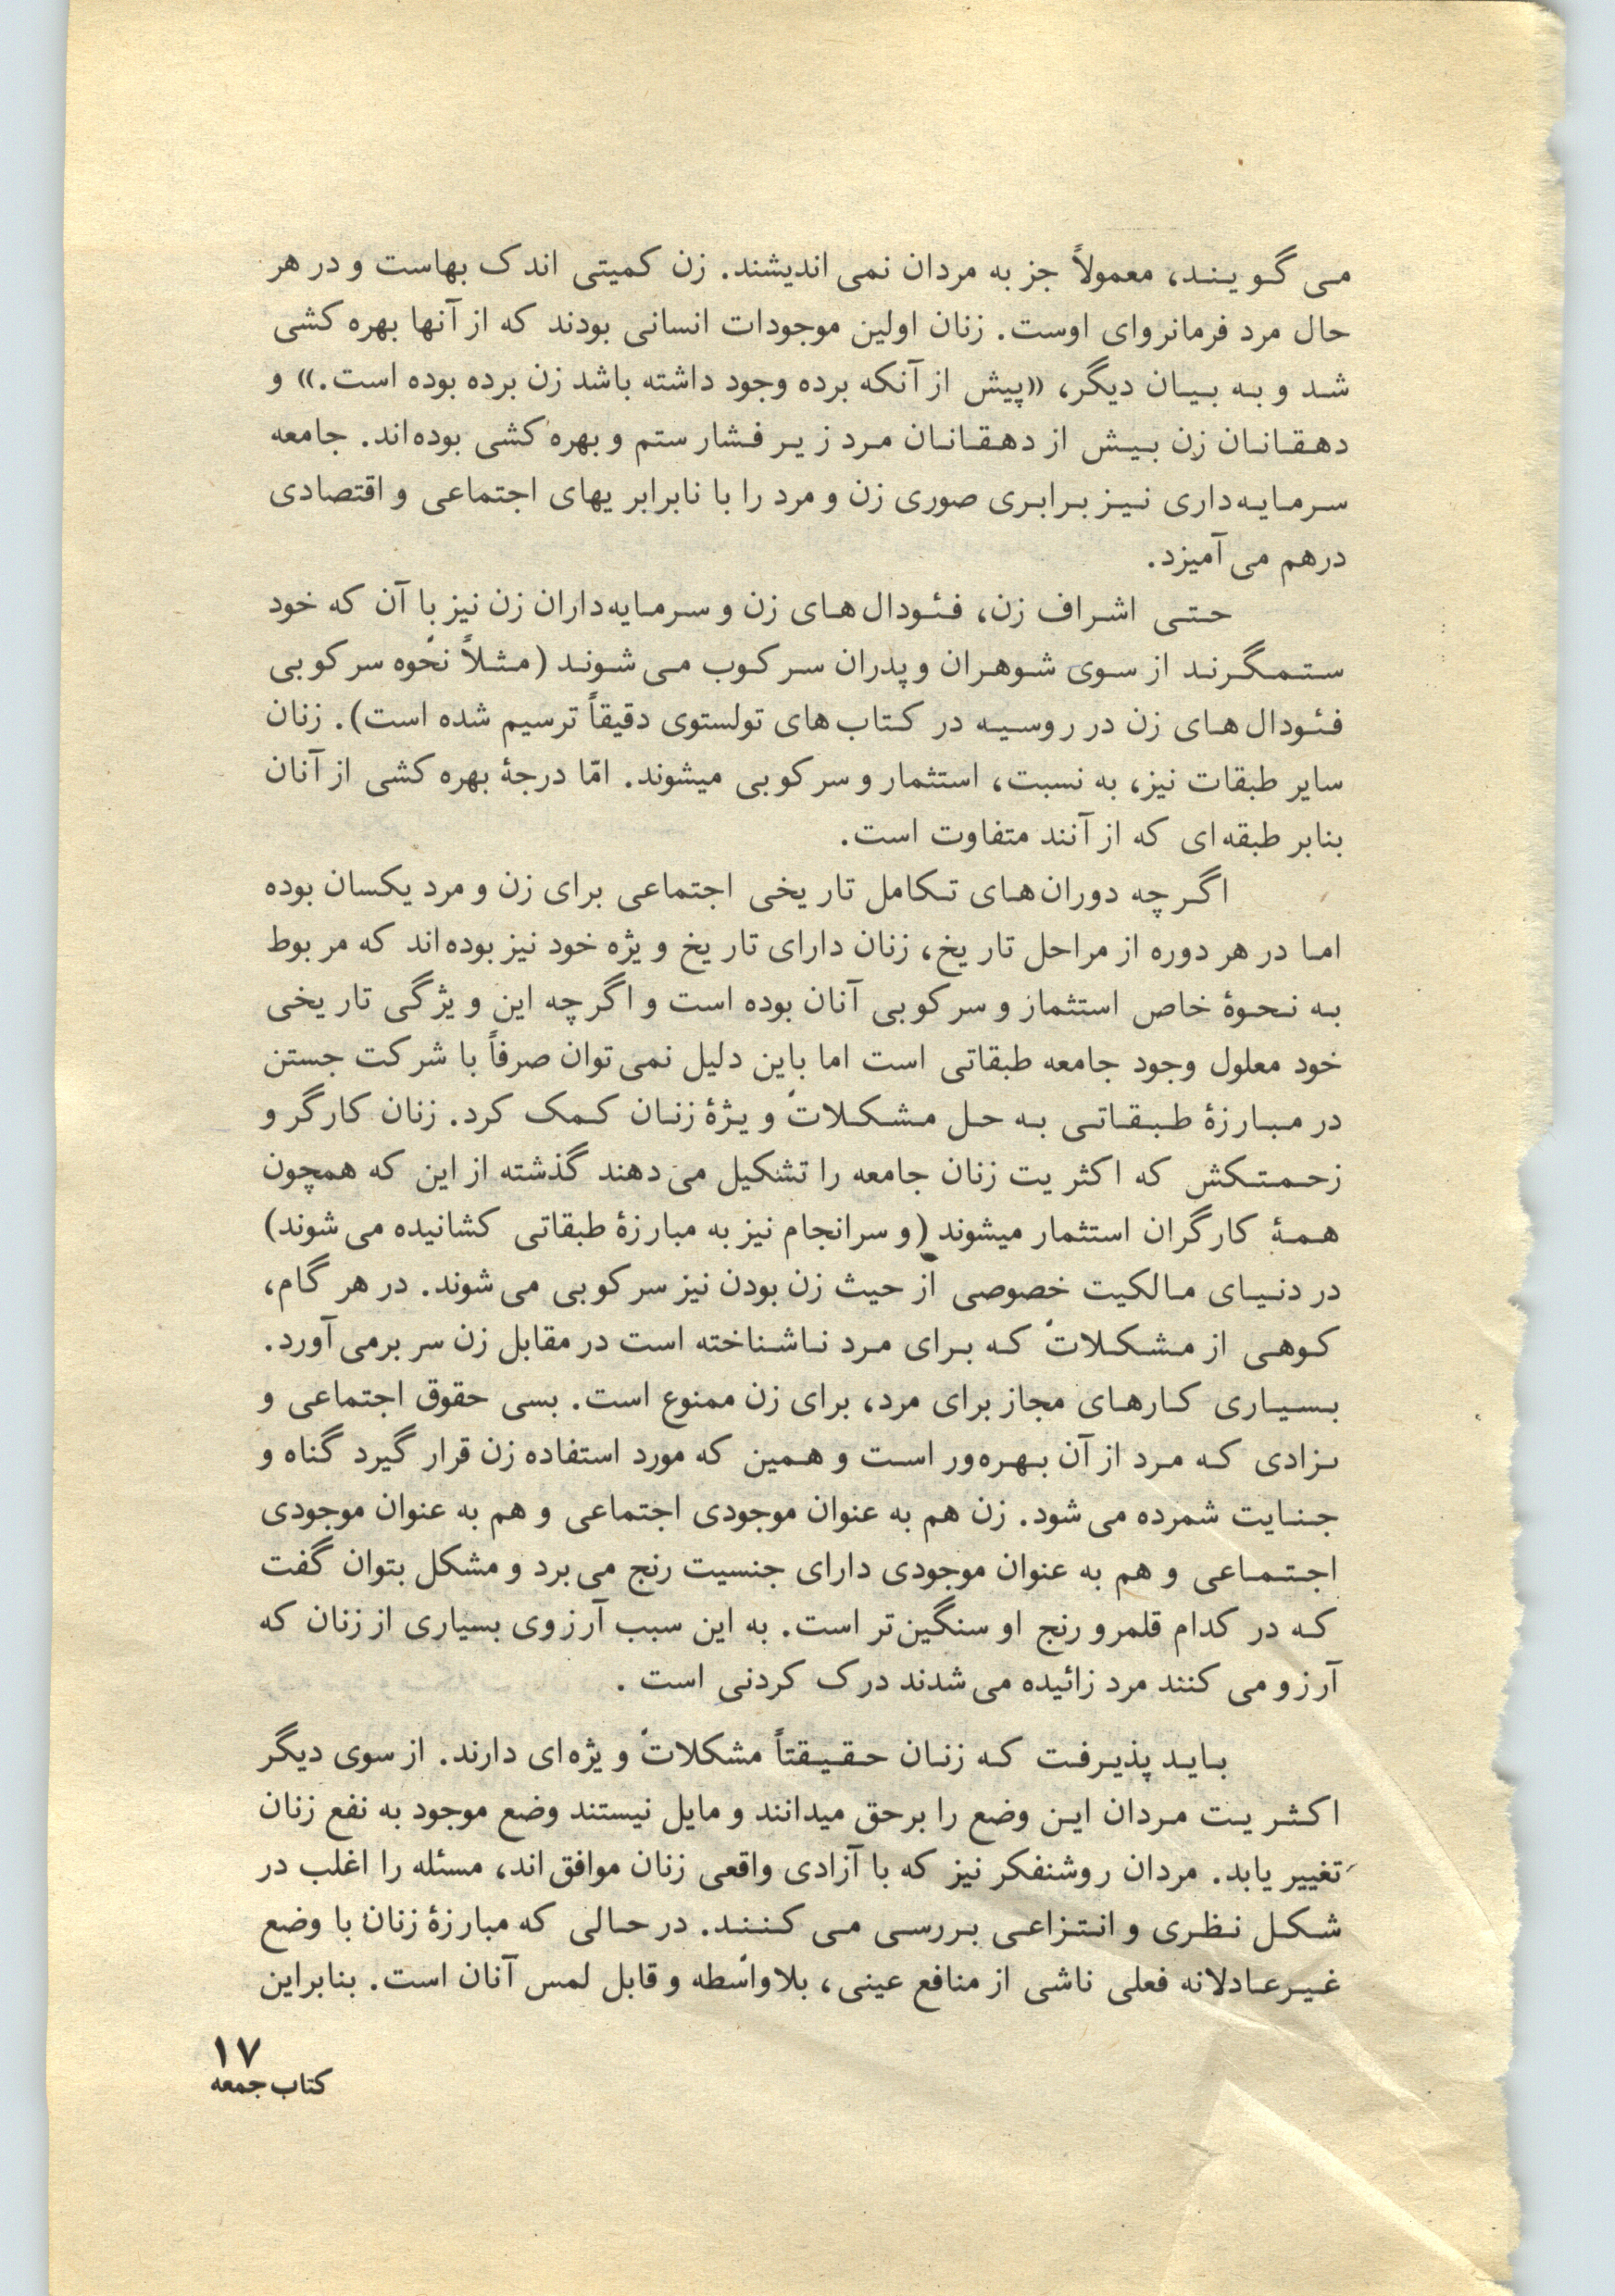 می گویند، معمولاً جز به مردان نمی اندیشند. زن کمیتی اندک بهاست و در هر
حال مرد فرمانروای اوست. زنان اولین موجودات انسانی بودند که از آنها بهره کشی
شد و به بیان دیگر، «پیش از آنکه برده وجود داشته باشد زن برده بوده است.» و
دهقانان زن بیش از دهقانان مرد زیر فشار ستم و بهره کشی بوده‌اند. جامعه
سرمایه‌داری نیز برابری صوری زن و مرد را با نابرابریهای اجتماعی و اقتصادی
درهم می آمیزد.
حتی اشراف زن، فئودال‌های زن و سرمایه‌داران زن نیز با آن که خود
ستمگرند از سوی شوهران و پدران سرکوب می شوند (مثلاً نحوه سرکوبی
فئودال‌های زن در روسیه در کتاب‌های تولستوی دقیقاً ترسیم شده است). زنان
سایر طبقات نیز، به نسبت، استثمار و سرکوبی میشوند. امّا درجهٔ بهره کشی از آنان
بنابر طبقه‌ای که از آنند متفاوت است.
اگرچه دوران‌های تکامل تاریخی اجتماعی برای زن و مرد یکسان بوده
اما در هر دوره از مراحل تاریخ، زنان دارای تاریخ ویژه خود نیز بوده‌اند که مربوط
به نحوهٔ خاص استثمار و سرکوبی آنان بوده است و اگرچه این ویژگی تاریخی
خود معلول وجود جامعه طبقاتی است اما باین دلیل نمی توان صرفاً با شرکت جستن
در مبارزهٔ طبقاتی به حل مشکلات ویژهٔ زنان کمک کرد. زنان کارگر و
زحمتکش که اکثریت زنان جامعه را تشکیل می دهند گذشته از این که همچون
همهٔ کارگران استثمار میشوند (و سرانجام نیز به مبارزهٔ طبقاتی کشانیده می شوند)
در دنیای مالکیت خصوصی از حیث زن بودن نیز سرکوبی می شوند. در هر گام،
کوهی از مشکلات که برای مرد ناشناخته است در مقابل زن سر برمی آورد.
بسیاری کارهای مجاز برای مرد، برای زن ممنوع است. بسی حقوق اجتماعی و
نژادی که مرد از آن بهره‌ور است و همین که مورد استفاده زن قرار گیرد گناه و
جنایت شمرده می شود. زن هم به عنوان موجودی اجتماعی و هم به عنوان موجودی
اجتماعی و هم به عنوان موجودی دارای جنسیت رنج می برد و مشکل بتوان گفت
که در کدام قلمرو رنج او سنگین‌تر است. به این سبب آرزوی بسیاری از زنان که
آرزو می کنند مرد زائیده می شدند درک کردنی است .
باید پذیرفت که زنان حقیقتاً مشکلات ویژه‌ای دارند. از سوی دیگر
اکثریت مردان این وضع را برحق میدانند و مایل نیستند وضع موجود به نفع زنان
تغییر یابد. مردان روشنفکر نیز که با آزادی واقعی زنان موافق‌اند، مسئله را اغلب در
شکل نظری و انتزاعی بررسی می کنند. در حالی که مبارزهٔ زنان با وضع
غیرعادلانه فعلی ناشی از منافع عینی، بلاواسطه و قابل لمس آنان است. بنابراین
۱۷
کتاب جمعه